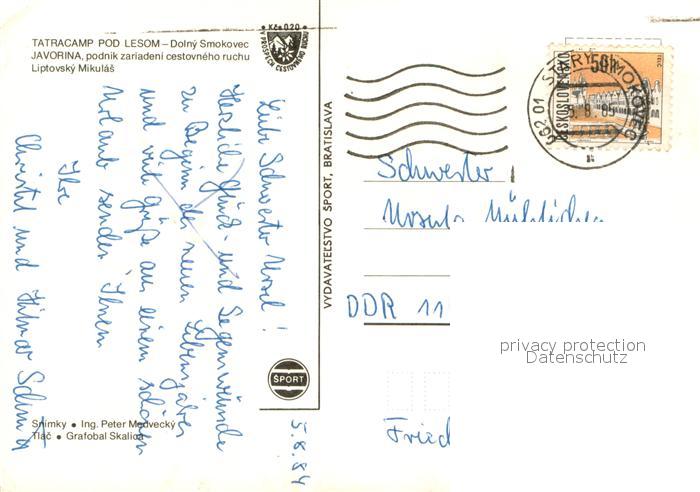 TATRACAMP POD LESOM – Dolný Smokovec
JAVORINA, podnik zariadení cestovného ruchu
Liptovský Mikuláš
Kčs 0,20
V PROSPECH CESTOVNÉHO RUCHU
Liebe Schwester Ursel!
Herzliche Glück- und Segenswünsche
zu Beginn des neuen Lebensjahres
und viele Grüße aus einem schönen
Urlaub senden Ihnen
Ihre
Christel und Hilmar
5.8.84
ŠPORT
Snímky • Ing. Peter Medvecký
Tlač • Grafobal Skalica
VYDAVATEĽSTVO ŠPORT, BRATISLAVA
ČESKOSLOVENSKO
50h
062 01 STARÝ SMOKOVEC
Schwester
Ursula
DDR 11
Fried
privacy protection
Datenschutz